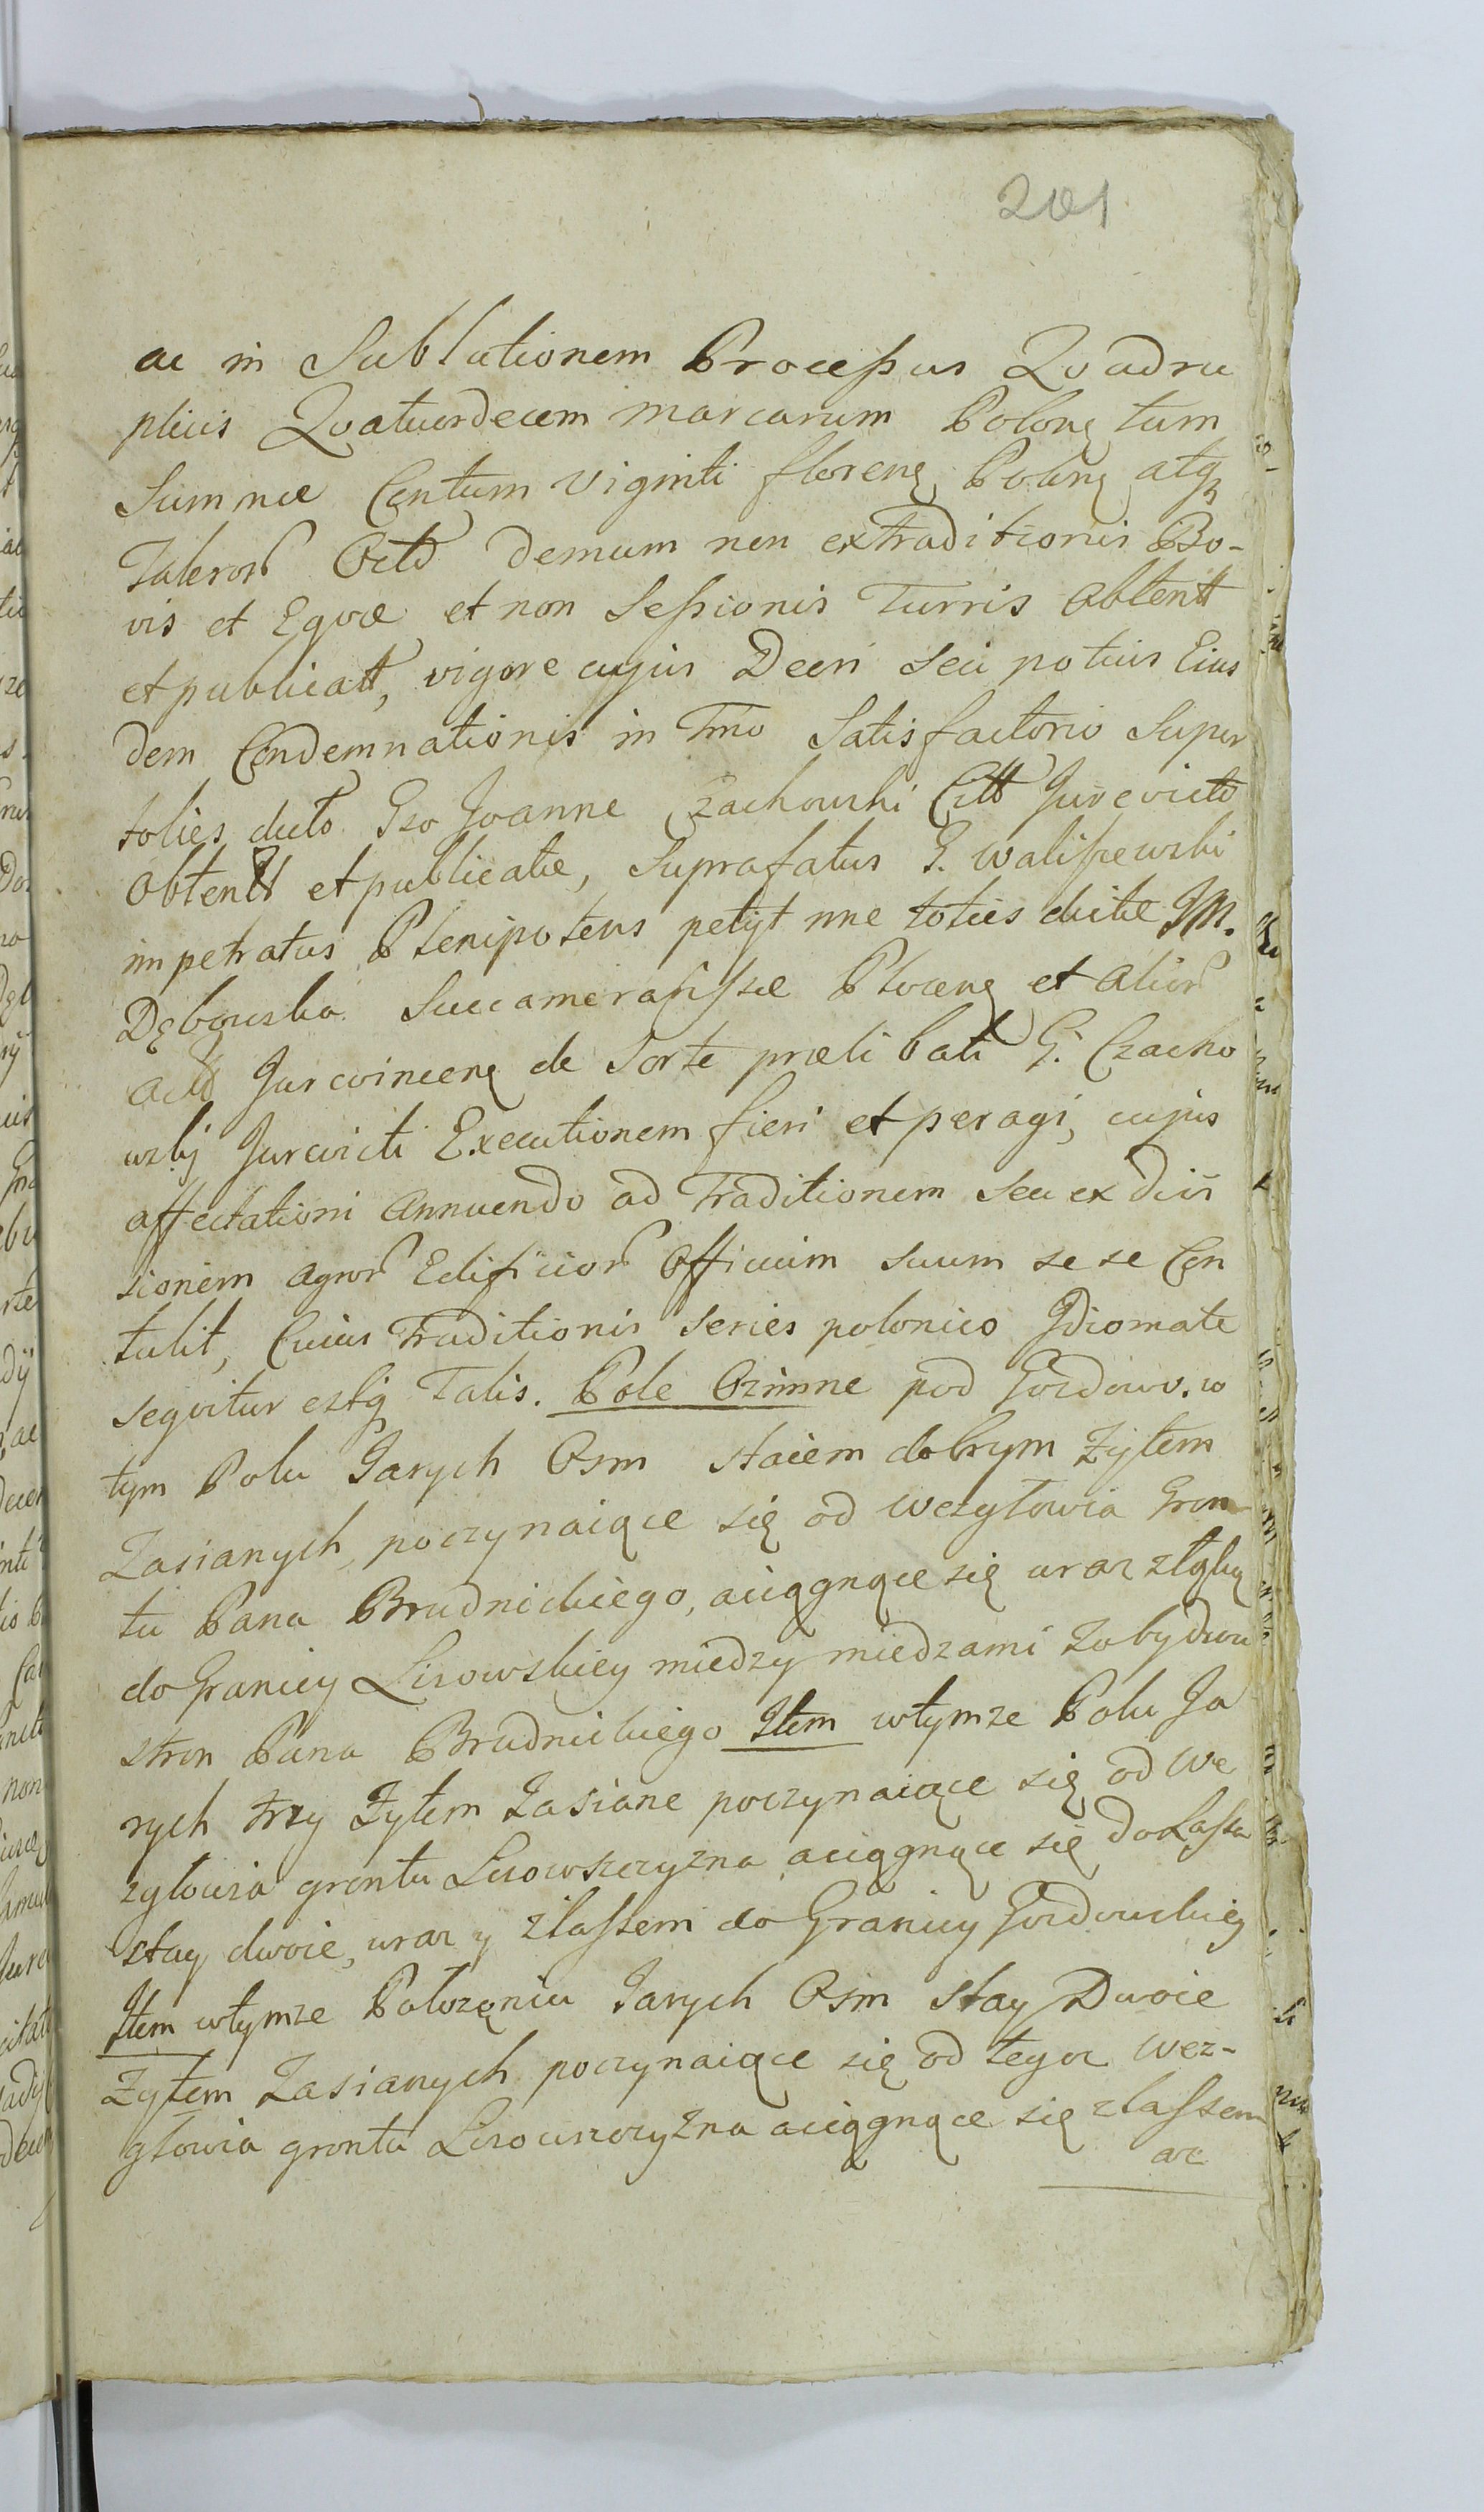 201
ac in Sublationem Processus Quadru
plicis Quatuordecem marcarum Polonę tum
Summæ Centum Viginti florenę Polonę atqȝ
Taleror Octo demum non extraditionis Bo-
vis et Equæ et non Sessionis Turris Obtentt
et publicatt, vigore cujus Decri seu potius Eius
dem Condemnationis in Tmo Satisfactorio Super
toties dicto Gso Joanne Czachowski Citt Jurevicto
Obtentt et publicatæ, Suprafatus G. Waliszewski
impetratus Plenipotens petijt nne toties dictæ JM.
Dębowska Succamerarissæ Plocenę et alior
Actt Jurevincenę de Sorte prælibati G. Czacho
wskj Jurevicti Executionem fieri et peragi, cujus
affectationi Annuendo ad Traditionem seu exdivi
sionem agror Edificior Officium suum sese Con
tulit, Cuius Traditionis series polonico Jdiomate
sequitur estq Talis. Pole Ozimne pod Gozdowo. w
tym Polu Jarych Osm staiem dobrym Żytem
Zasianych, poczynaiące się od Wezgłowia Gron-
tu Pana Brudnickiego, aciągnące się wraz złąką
do Granicy Lisowskiey miedzy miedzami zobydwu
stron Pana Brudnickiego Item wtymże Polu Ja
rych trzy Żytem Zasiane poczynaiące się od We
zgłowia grontu Lisowszczyzna aciągnące się do Lassa
stay dwoie, wraz y zlassem do Granicy Gozdowskiey
Item wtymże Położęniu Jarych Osm stay Dwoie
Żytem Zasianych poczynaiące się od tegoz Wez-
głowia grontu Lisowszczyzna aciągnące się zlassem